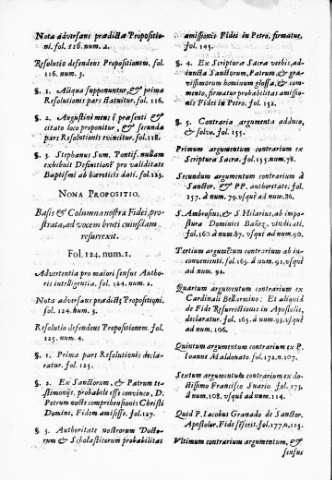 Nota adversans prædictæ Propositio-
ni. fol. 116. num. 2.
Resolutio defendens Propositionem. fol.
116. num. 3.
§. 1. Aliqua supponuntur, & prima
Resolutionis pars statuitur. fol. 116.
§. 2. Augustini mens è præsenti &
citato loco proponitur, & secunda
pars Resolutionis evincitur. fol. 118.
§. 3. Stephanus Sum. Pontif. nullam
exhibuit Definitionem pro validitate
Baptismi ab hæreticis dati. fol. 123.
NONA PROPOSITIO.
Basis & Columna nostra Fidei, pro-
strata, ad vocem
resurrexit.
Fol. 124. num. 1.
Advertentia pro maiori sensus Autho-
ris intelligentia. fol. 124. num. 2.
Nota adversans prædictæ Propositioni.
fol. 124. num. 3.
Resolutio defendens Propositionem. fol.
125. num. 4.
§. 1. Prima pars Resolutionis decla-
ratur. fol. 125.
§. 2. Ex Sanctorum, & Patrum te-
stimonijs, probabile esse convinco, D.
Petrum nocte comprehensionis Christi
Domini, Fidem amisisse. fol. 127.
§. 3. Authoritate nostrorum Docto-
rum & Scholasticorum probabilitas
amissionis Fidei in Petro, firmatur,
fol. 145.
§. 4. Ex Scriptura Sacra verbis, ad-
iuncta Sanctorum, Patrum, & gra-
vissimorum hominum glossa, & com-
mento, firmatur probabilitas amissio-
nis Fidei in Petro. fol. 152.
§. 5. Contraria argumenta adduco,
& solvo. fol. 155.
Primum argumentum contrarium ex
Scriptura Sacra. fol. 155. num. 78.
Secundum argumentum contrarium à
Sanctor. & PP. authoritate. fol.
157. à num. 79. usque ad num. 86.
S. Ambrosius, & S. Hilarius, ab impo-
stura Dominici Bañez, vindicati,
fol. 160. à num. 87. usque ad num. 90.
Tertium argumentum contrarium ab in-
convenienti. fol. 163. à num. 91. usque
ad num. 92.
Quartum argumentum contrarium ex
Cardinali Bellarmino: Et aliquid
de Fide Resurrectionis in Apostolis,
declaratur. fol. 165. à num. 93. usque
ad num. 106.
Quintum argumentum contrarium ex P.
Ioanne Maldonato. fol. 172. n. 107.
Sextum argumentum contrarium ex do-
ctissimo Francisco Suario. fol. 173.
à num. 108. usque ad num. 114.
Quid P. Iacobus Granado de Sanctor.
Apostolor. Fide senserit. fol. 177. n. 115.
Vltimum contrarium argumentum, &
sensus